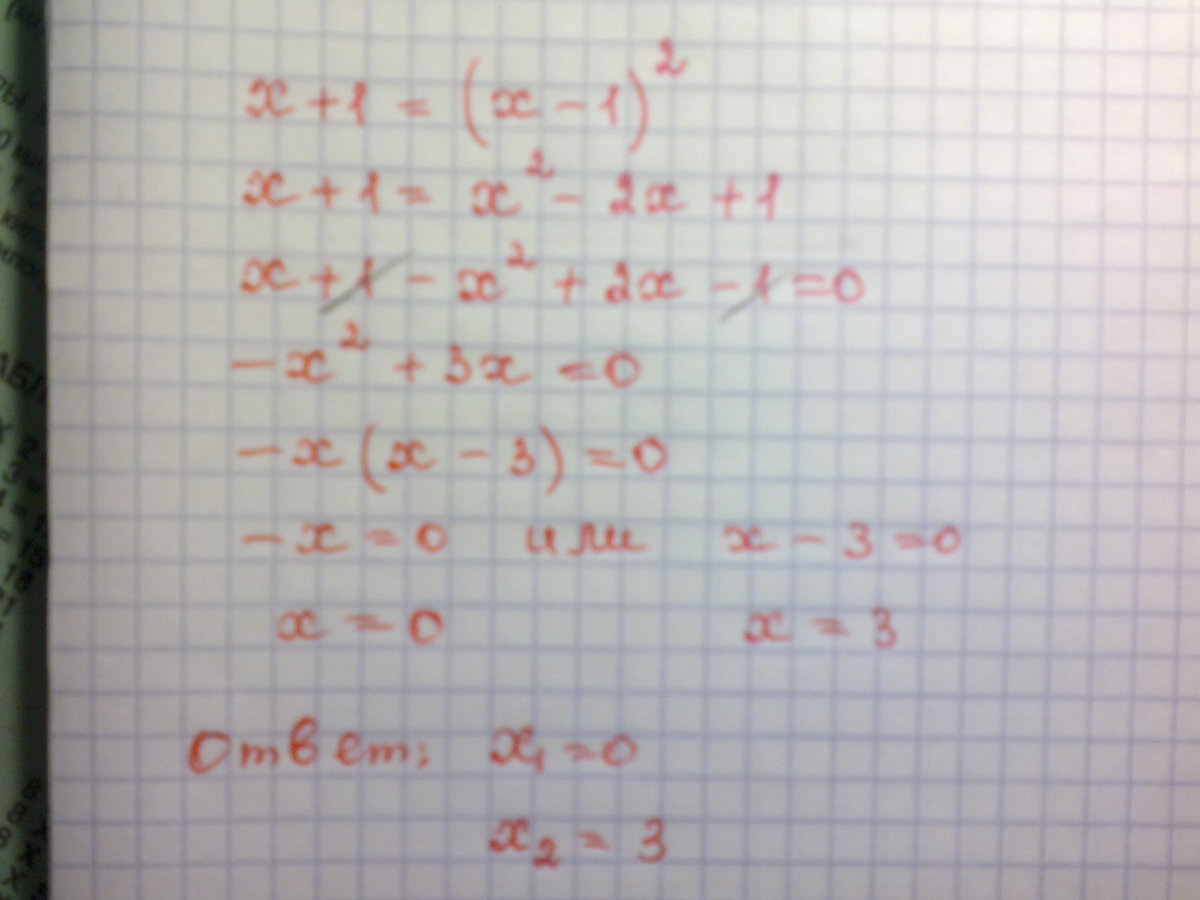 x + 1 = (x - 1)²
x + 1 = x² - 2x + 1
x + 1 - x² + 2x - 1 = 0
- x² + 3x = 0
- x (x - 3) = 0
- x = 0 или x - 3 = 0
x = 0 x = 3
Ответ: x₁ = 0
x₂ = 3